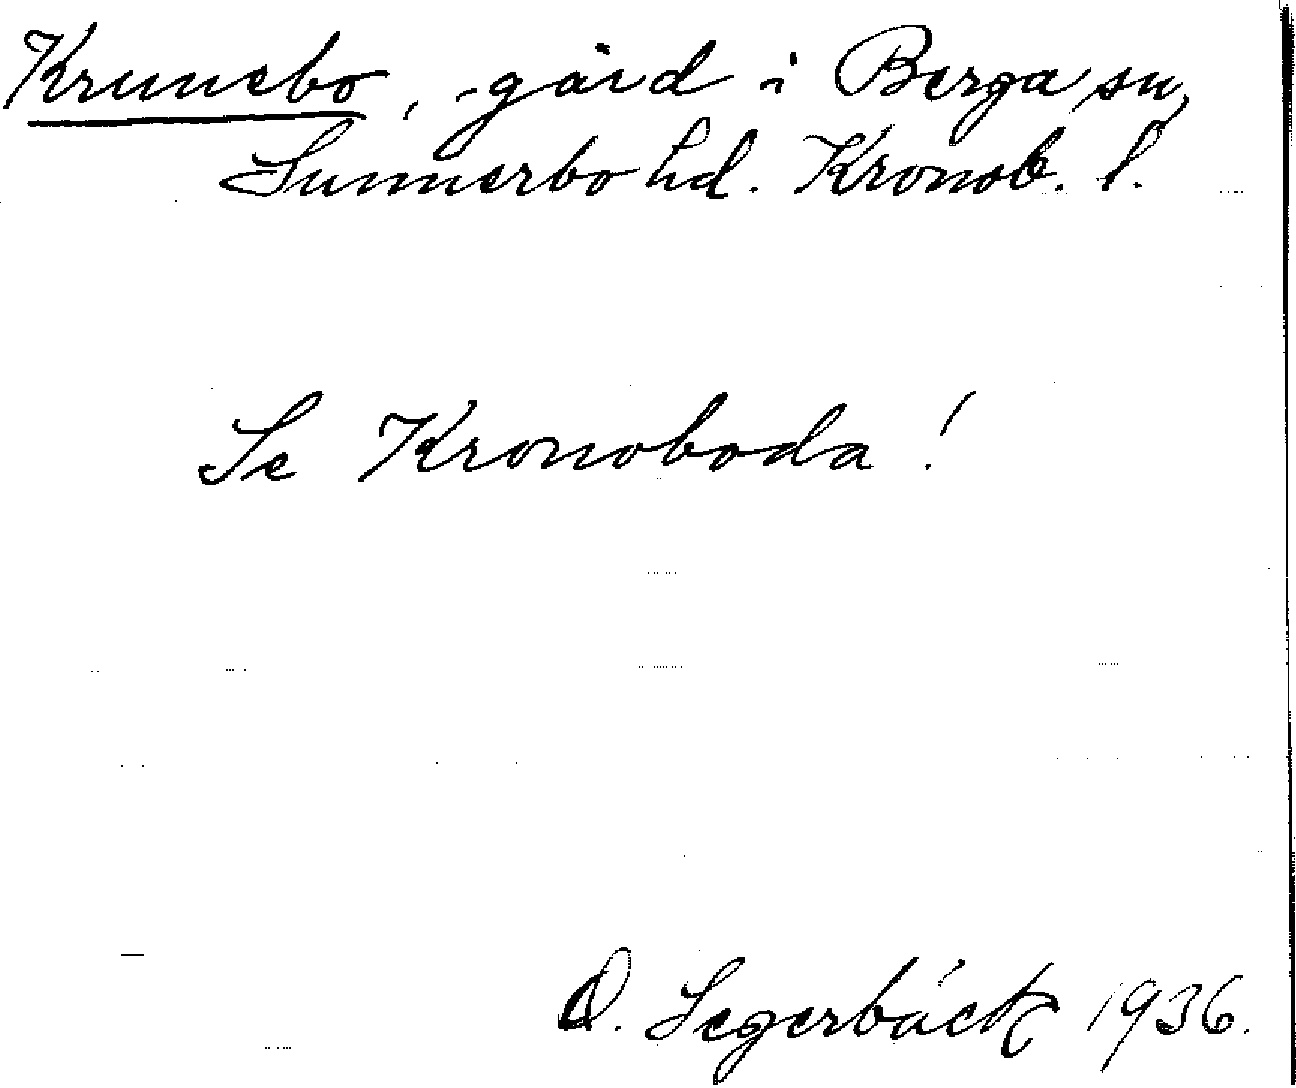 Krunebo, -gård i Berga sn,
Sunnerbo hd. Kronob. l.
Se Kronoboda!
O. Segerbäck 1936.